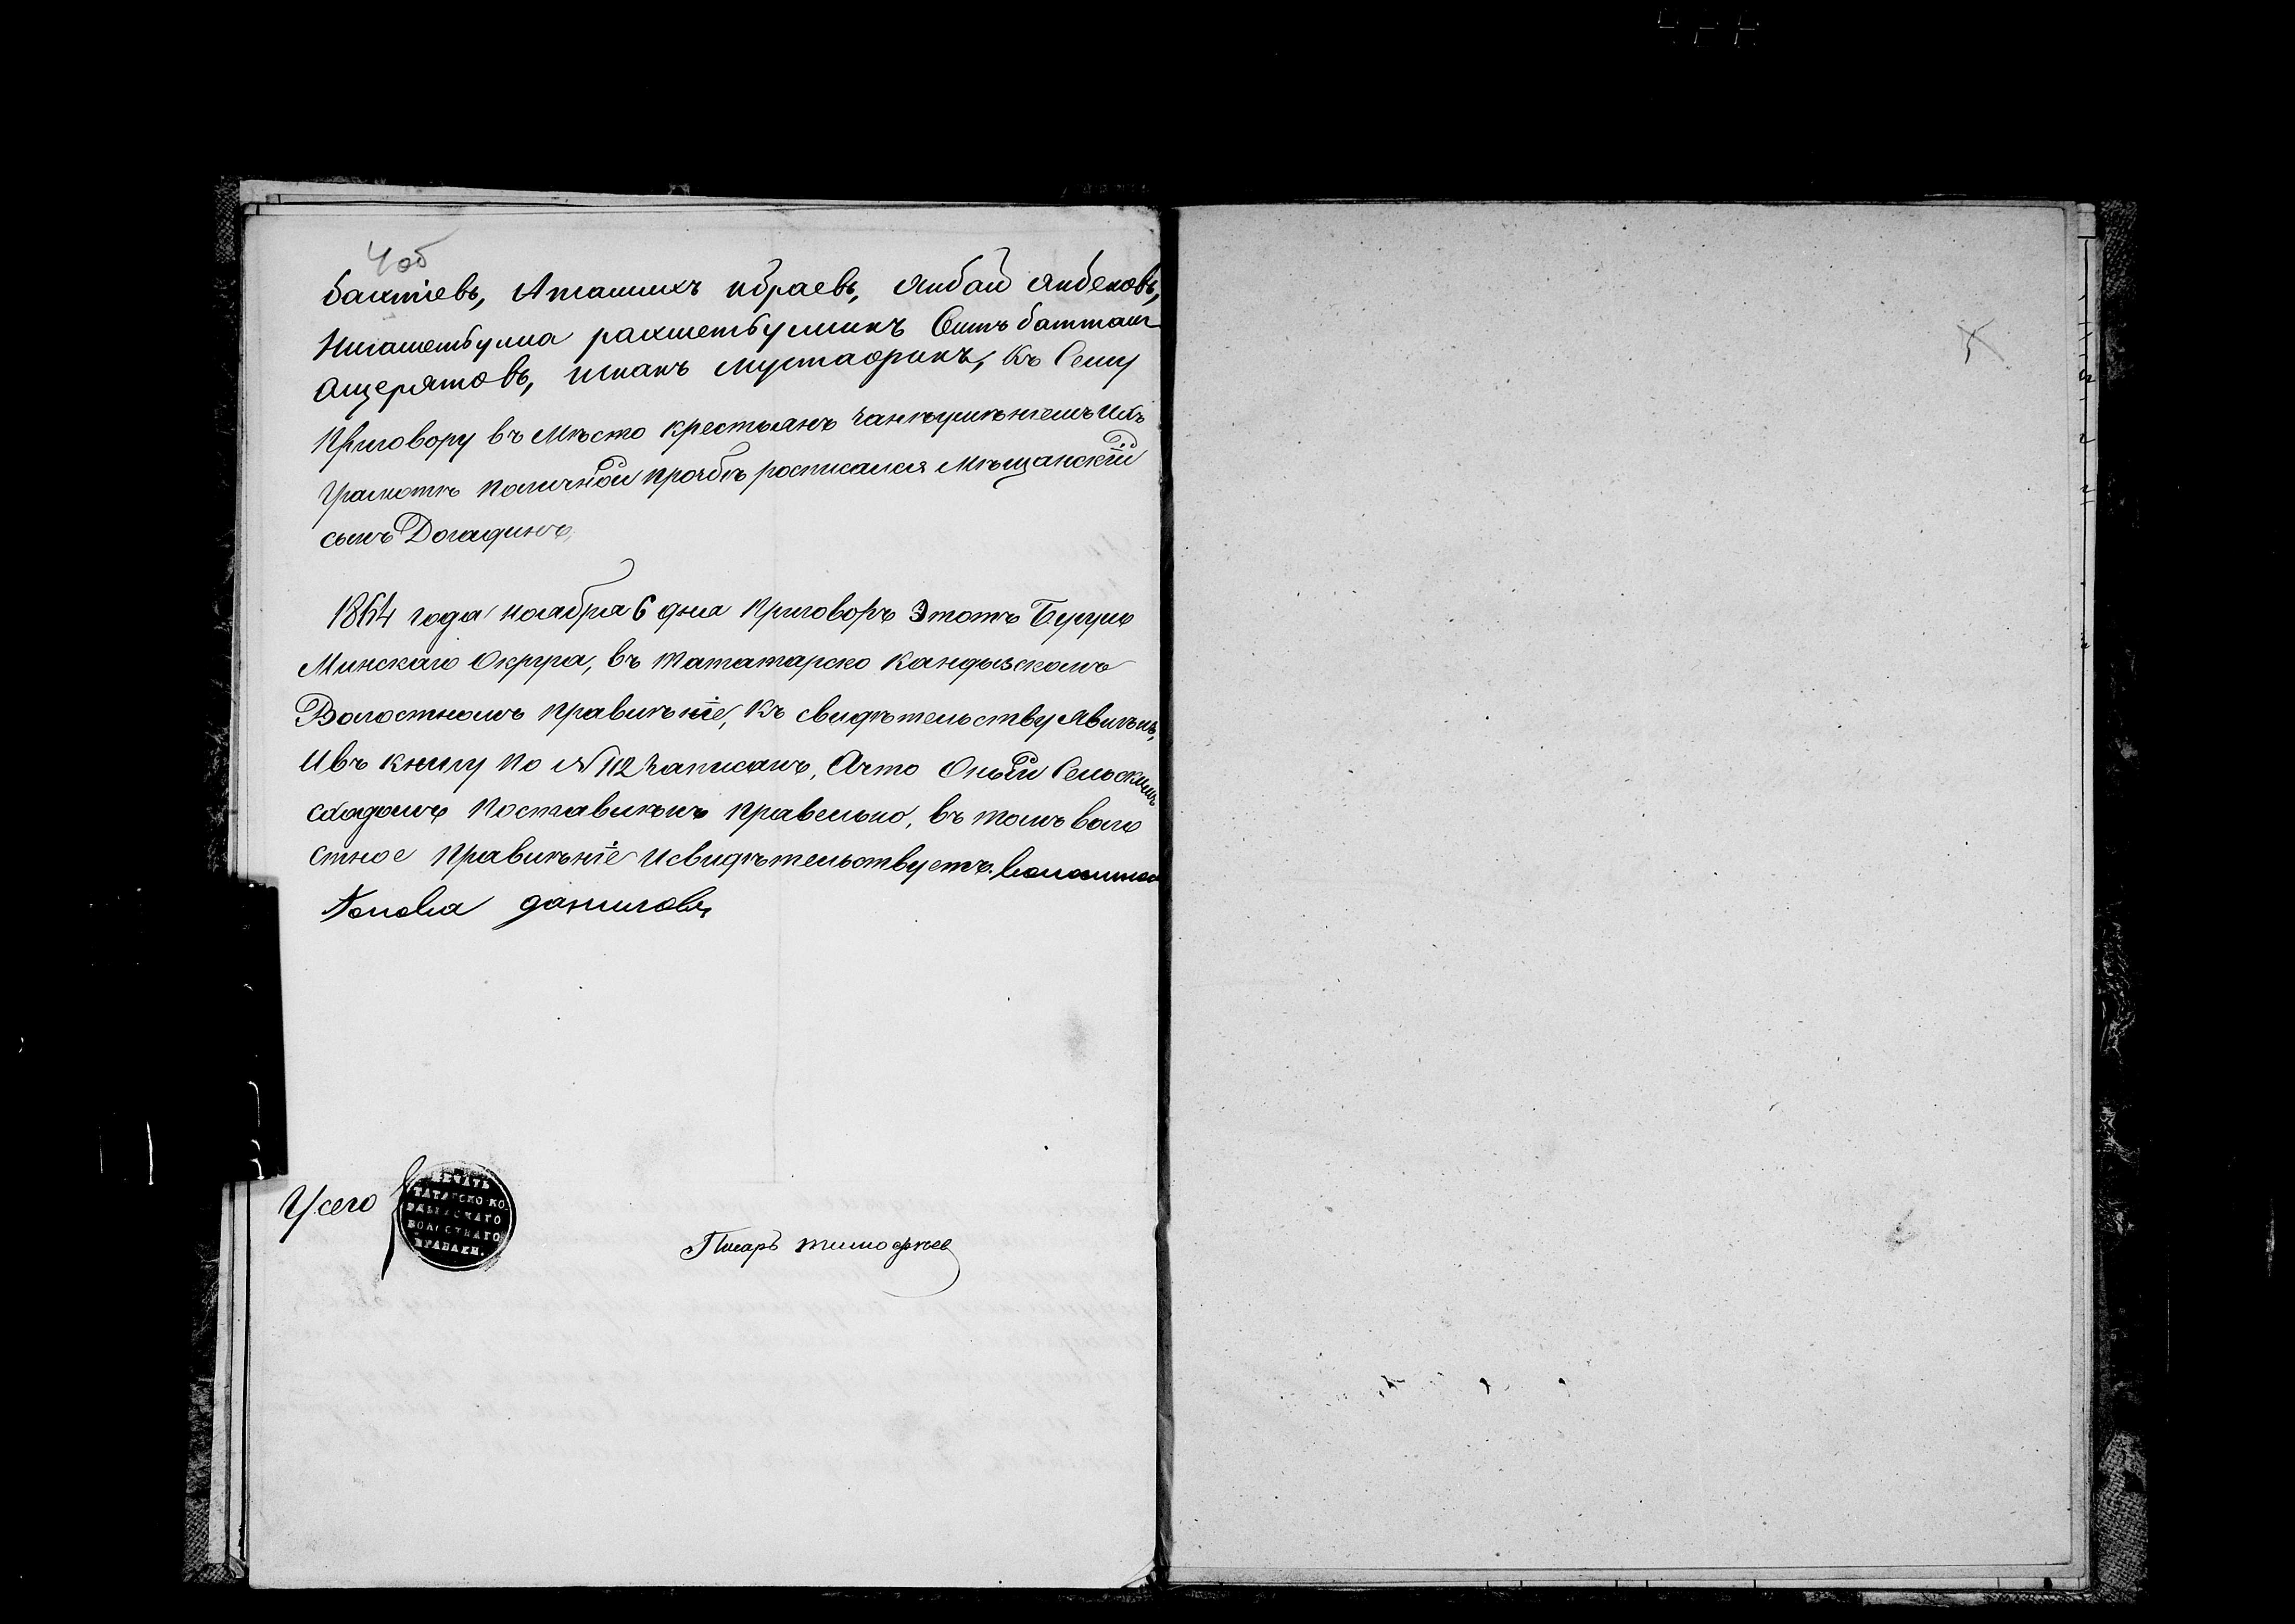 4об
бахтіевъ, Аташихъ ибраевъ, Янбай Янбековъ,
Нигаметбулла рахметбуллинъ Сеитъ баттал
Ащерятовъ, исхакъ мустафинъ, къ Сему
Приговору въ Мѣсто крестьянъ занѣумѣніемъ Ихъ
Грамотѣ поличной прозбѣ росписался Мѣщанскій
сынъ Догадинъ,
1864 года ноября 6 дня Приговоръ Этотъ Бугуль
Минскаго Округа, въ Тататарско Кандызскомъ
Волостномъ правилѣніе, къ свидѣтельству Явилѣнъ,
Ивъ книгу по №112 Записанъ, Ачто Оный Сельскимъ
сходомъ поставилѣнъ правельно, въ томъ воло
стное правилѣніе Исвидѣтельствуетъ. Волостной
Голова даниловъ
У сего
ПЕЧАТЬ
ТАТАРСКО-КО
ВОЛОСТНАГО
ПРАВЛЕН.
Писарь тимофѣев